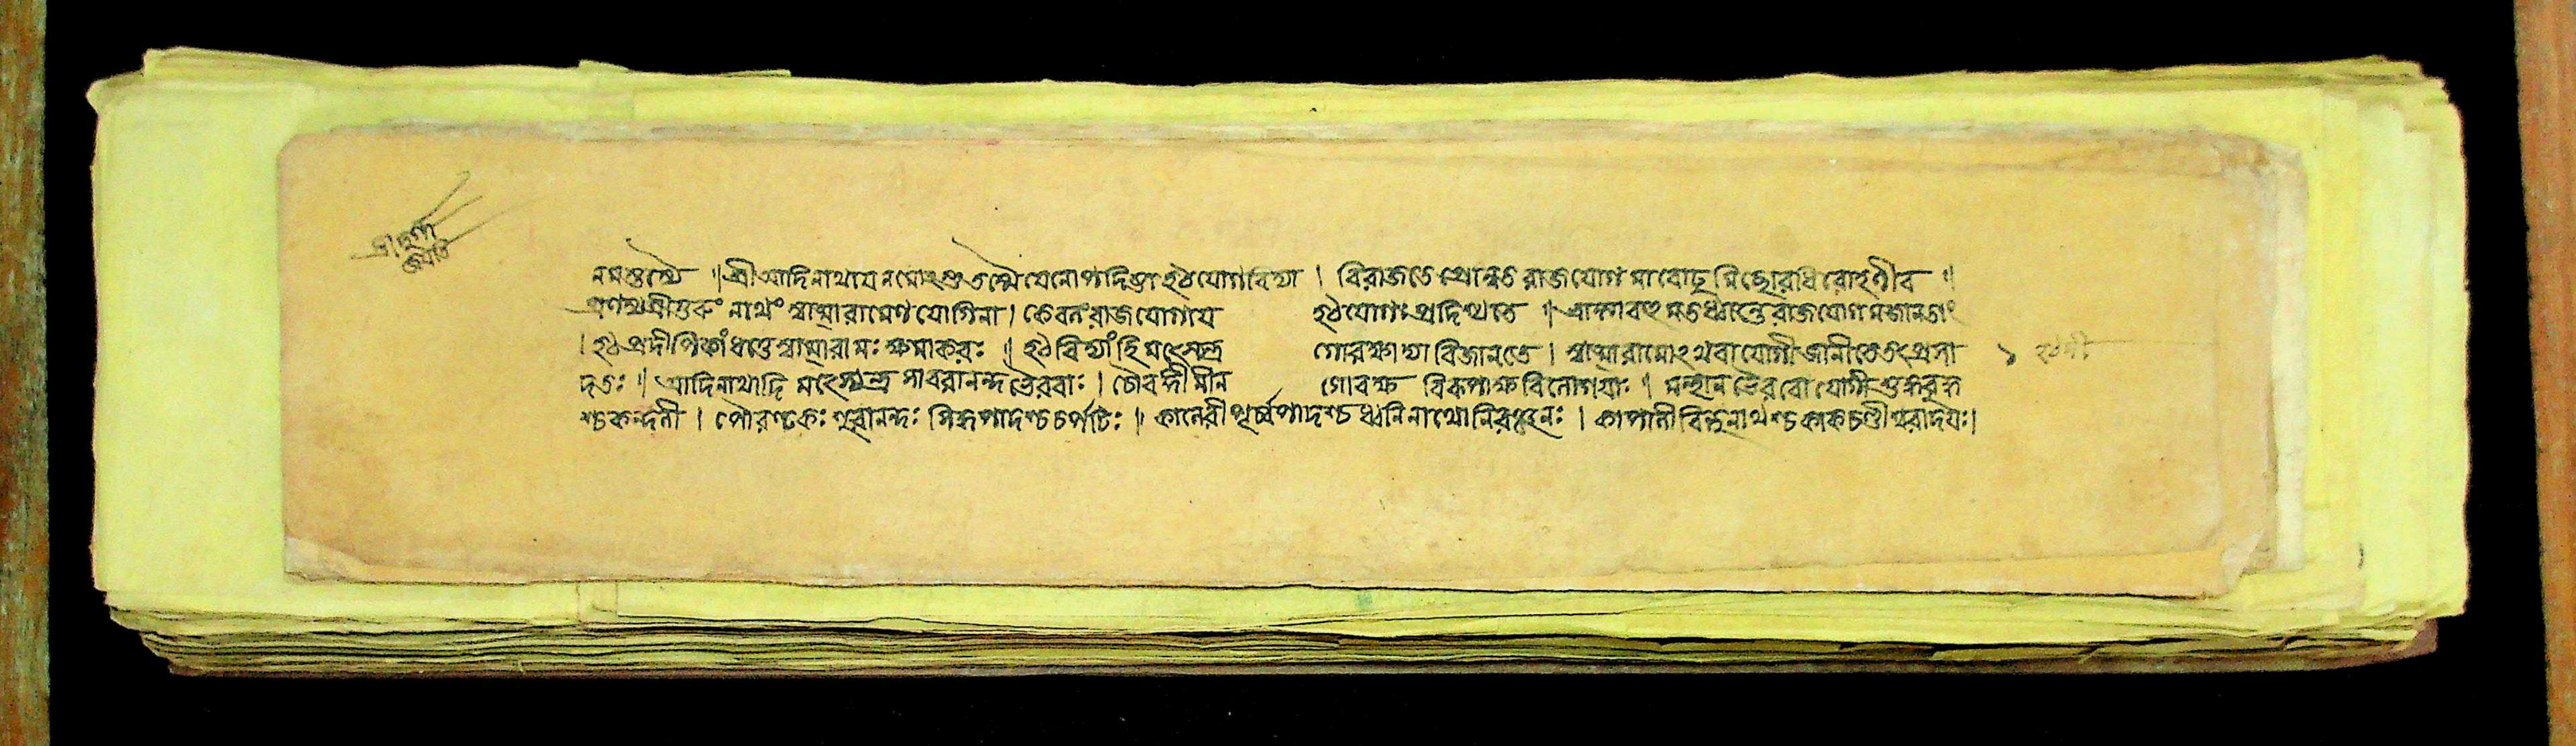 শ্রীদুর্গা
জয়তি
নমস্তস্মৈ ॥ শ্রীআদিনাথায় নমোঽস্তু তস্মৈ যেনোপদিষ্টা হঠযোগবিদ্যা । বিরাজতে প্রোন্নত রাজযোগ মারোঢু মিছোরধিরোহণীব ॥
প্রণম্য শ্রীগুরুং নাথং স্বাত্মারামেণ যোগিনা । কেবলং রাজযোগায় হঠযোগঃ প্রদিশ্যতে ॥ ভ্রান্ত্যা বহু মতধ্বান্তে রাজযোগ মজানতাং
। হঠ প্রদীপিকাং ধত্তে স্বাত্মারামঃ ক্ষমাকরঃ ॥ হঠ বিদ্যাং হি মৎস্যেন্দ্র গোরক্ষাদ্যা বিজানতে । স্বাত্মারামোঽথবা যোগী জানীতে তৎপ্রসা
দতঃ ॥ আদিনাথাদি মৎস্যেন্দ্র সাবরানন্দ ভৈরবাঃ । চৌরঙ্গী মীন গোরক্ষ বিরূপাক্ষ বিলেশয়াঃ । মন্থান ভৈরবো যোগী শুদ্ধবুদ্ধ
শ্চ কন্দলী । পৌরণ্টকঃ সুরানন্দঃ সিদ্ধপাদশ্চ চর্পটিঃ ॥ কানেরী পূর্ব্বপাদশ্চ ধ্বনিনাথো নিরঞ্জনঃ । কাপালী বিন্দুনাথশ্চ কাকচণ্ডীশ্বরাদয়ঃ ।
১